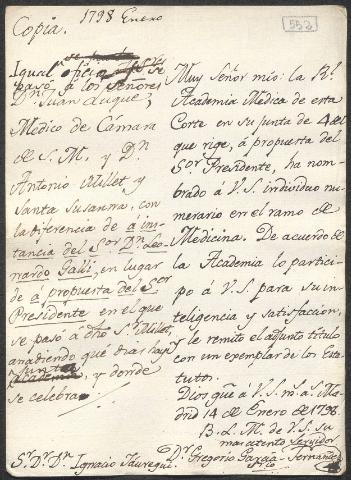 Copia. 1798 Enero
553
Igual oficio se
pasó á los Señores
Dn. Juan Luque,
Medico de Cámara
de S. M. y Dn.
Antonio Millet y
Santa Susanna, con
la diferencia de á ins-
tancia del Sor. Dn. Leo-
nardo Galli, en lugar
de á propuesta del Sor.
Presidente en el que
se pasó á dho Sr. Millet,
añadiendo que dias hay
Junta
Academia, y donde
se celebra
Sr. Dr. Dn. Ignacio Jáuregui.
Muy Señor mio: la Rl.
Academia Medica de esta
Corte en su junta de 4 del
que rige, á propuesta del
Sor. Presidente, ha nom-
brado á V. S. individuo nu-
merario en el ramo de
Medicina. De acuerdo de
la Academia lo partici-
po á V. S. para su in-
teligencia y satisfaccion,
y le remito el adjunto título
con un exemplar de los Esta-
tutos.
Dios gue. á V. S. m. a. Ma-
drid 14 de Enero de 1798.
B. L. M. de V. S. su
mas atento servidor
Dr. Gregorio Garcia Fernandez
Srio